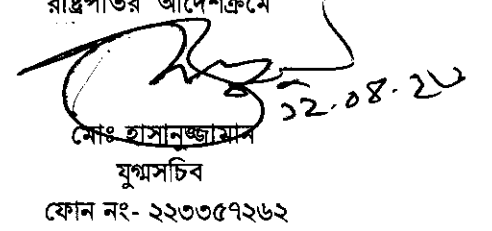 রাষ্ট্রপতির আদেশক্রমে
মোঃ হাসানুজ্জামান
যুগ্মসচিব
ফোন নং- ২২৩৩৫৭২৬২